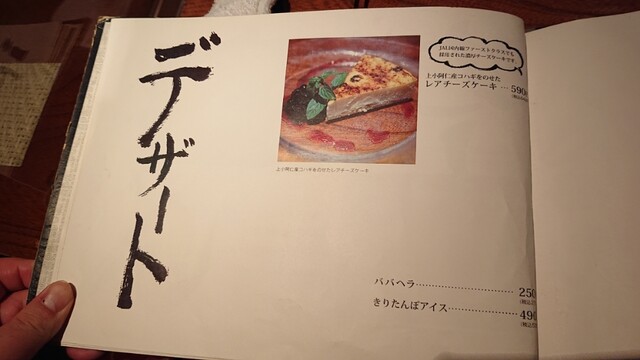 デザート
JAL国内線ファーストクラスでも
採用された濃厚チーズケーキです。
上小阿仁産コハゼをのせた
レアチーズケーキ … 590
上小阿仁産コハゼをのせたレアチーズケーキ
ババヘラ………………………… 250
きりたんぽアイス………………… 490